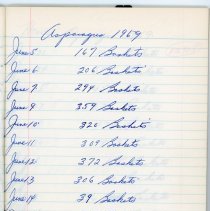 Asparagus 1969
June 5 167 Baskets
June 6 206 Baskets
June 7 294 Baskets
June 9 359 Baskets
June 10 320 Baskets
June 11 309 Baskets
June 12 372 Baskets
June 13 306 Baskets
June 14 39 Baskets